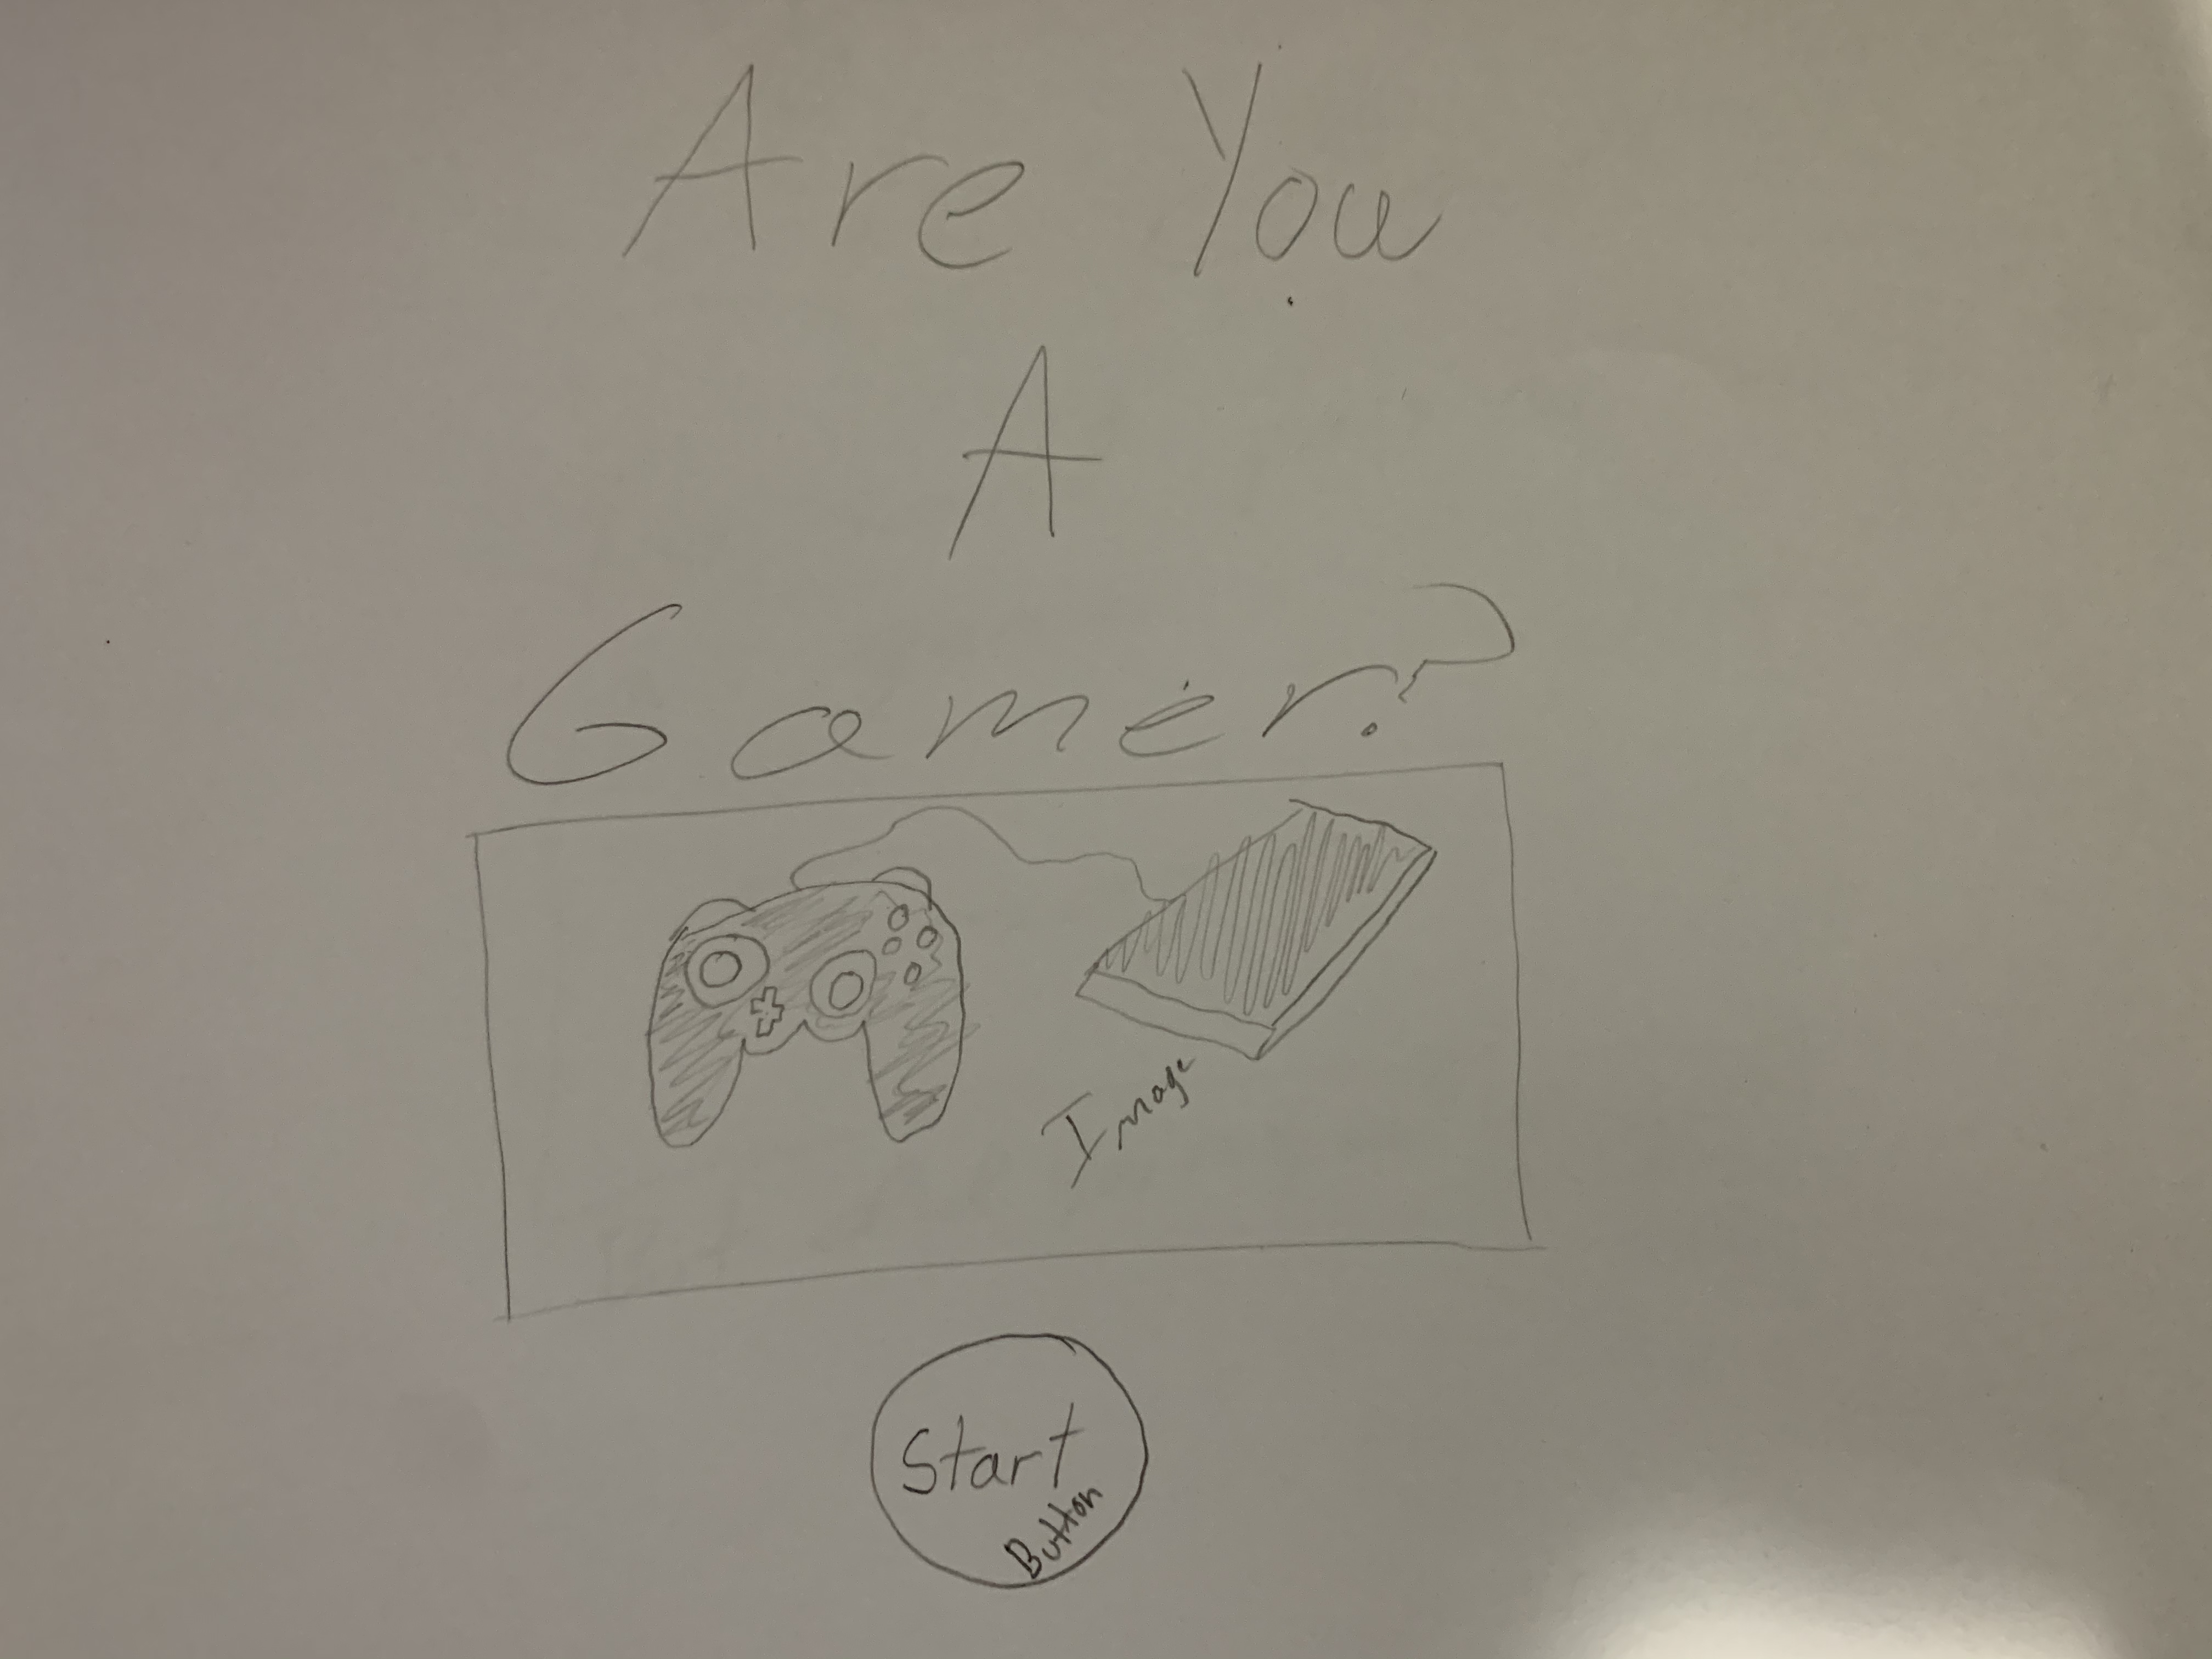 Are You
A
Gamer?
Image
Start
Button